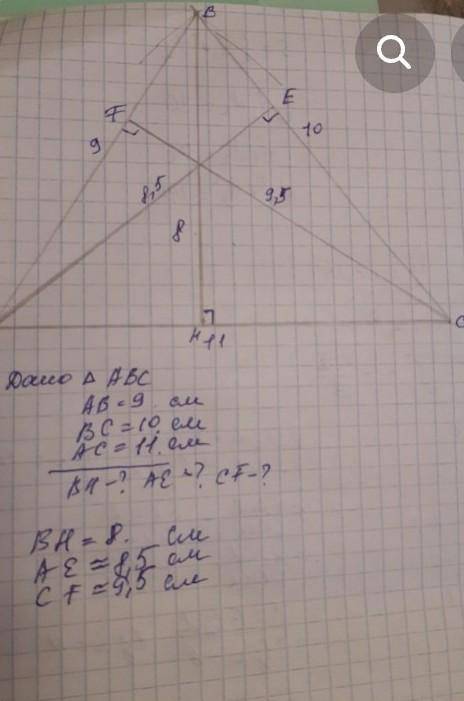 B
F
E
9
10
8,5
9,5
8
H
11
C
Дано △ ABC
AB = 9 см
BC = 10 см
AC = 11 см
BH - ? AE - ? CF - ?
BH = 8 см
AE ≈ 8,5 см
CF ≈ 9,5 см